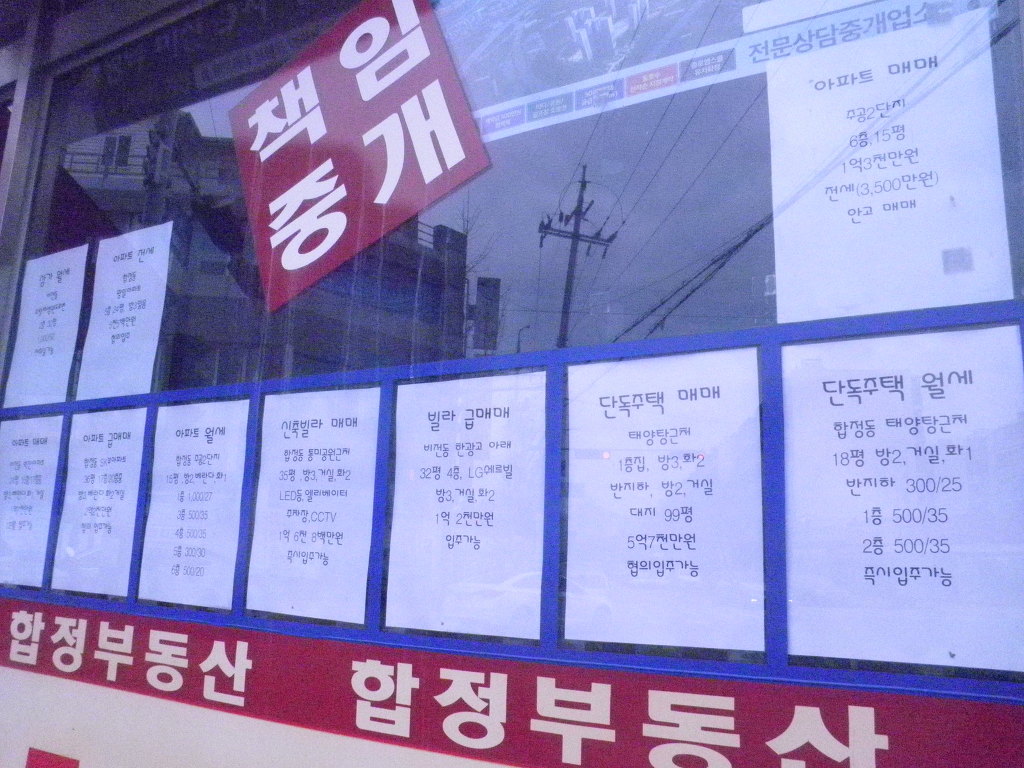 책임
중개
전문상담중개업소
아파트 매매
주공2단지
6층,15평
1억3천만원
전세(3,500만원)
안고 매매
상가 월세
아파트 전세
합정동
아파트 매매
아파트 급매매
아파트 월세
합정동 주공2단지
15평, 방2,베란다,화1
1층 1,000/27
3층 500/35
4층 500/35
5층 300/30
6층 500/20
신축빌라 매매
합정동 통미공원근처
35평, 방3,거실,화2
LED등,엘리베이터
주차장,CCTV
1억 6천 8백만원
즉시입주가능
빌라 급매매
비전동 한광고 아래
32평 4층, LG에르빌
방3,거실,화2
1억 2천만원
입주가능
단독주택 매매
태양탕근처
1층집, 방3,화2
반지하, 방2,거실
대지 99평
5억7천만원
협의입주가능
단독주택 월세
합정동 태양탕근처
18평 방2,거실,화1
반지하 300/25
1층 500/35
2층 500/35
즉시입주가능
합정부동산
합정부동산